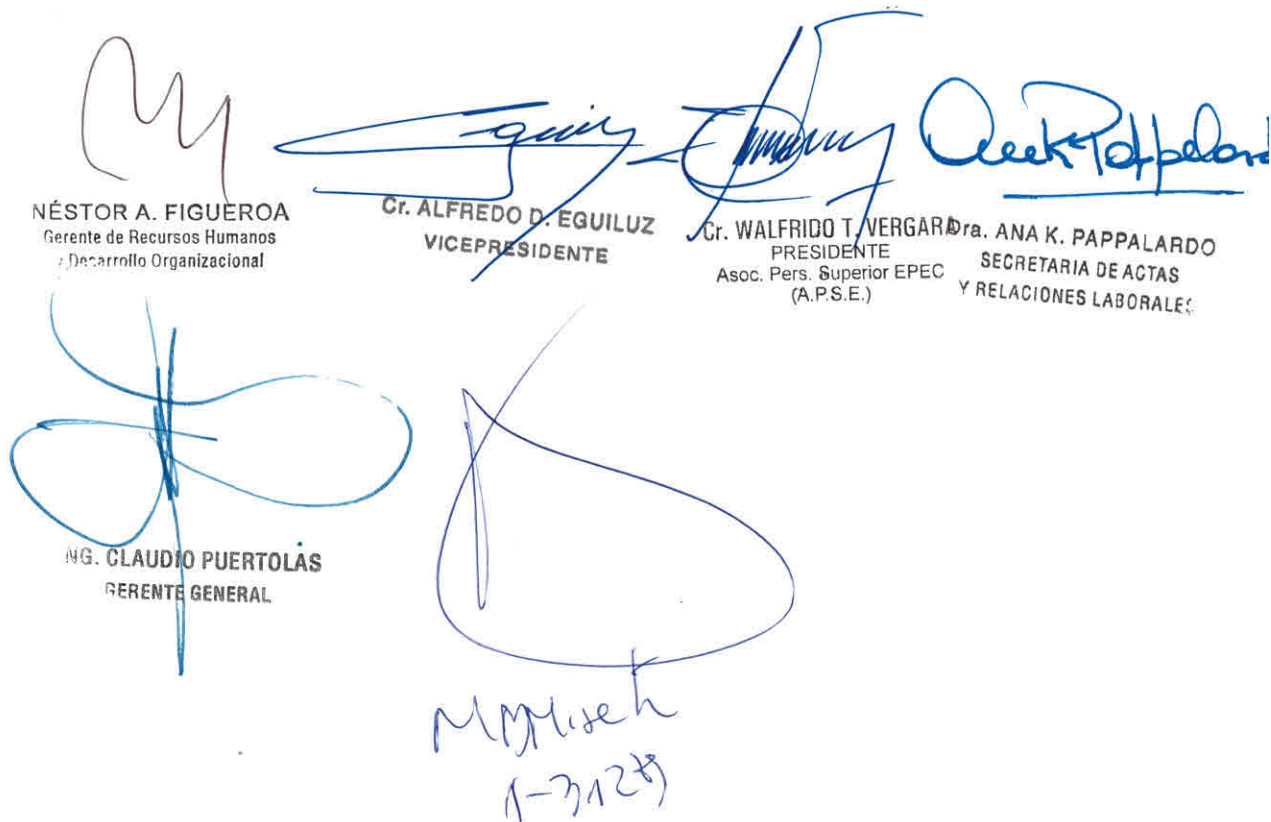 NÉSTOR A. FIGUEROA
Gerente de Recursos Humanos
y Desarrollo Organizacional
Cr. ALFREDO D. EGUILUZ
VICEPRESIDENTE
Cr. WALFRIDO T. VERGARA
PRESIDENTE
Asoc. Pers. Superior EPEC
(A.P.S.E.)
Dra. ANA K. PAPPALARDO
SECRETARIA DE ACTAS
Y RELACIONES LABORALES
ING. CLAUDIO PUERTOLÁS
GERENTE GENERAL